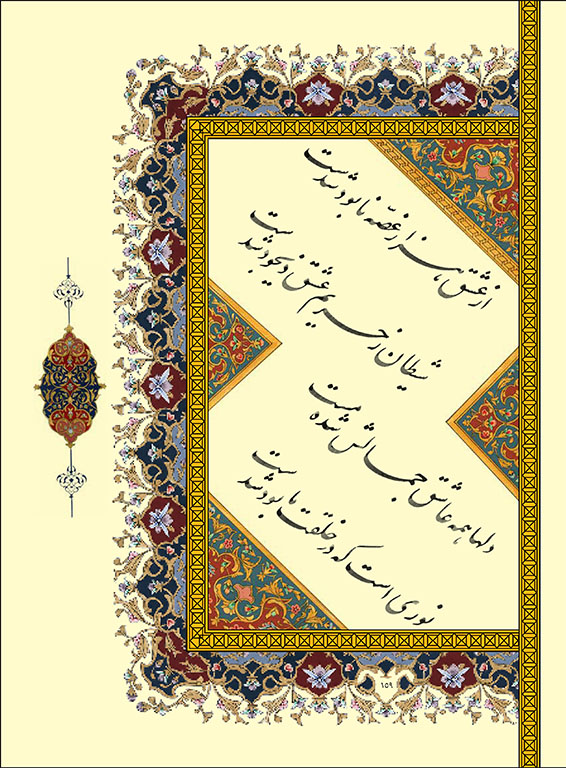 از عشق، هزار غصّه نابود شدست
شیطان ز حریم عشق شدست
دلها همه عاشق جمالش شده مست
نوری است که در خلقت ما بود شدست
۱۵۹